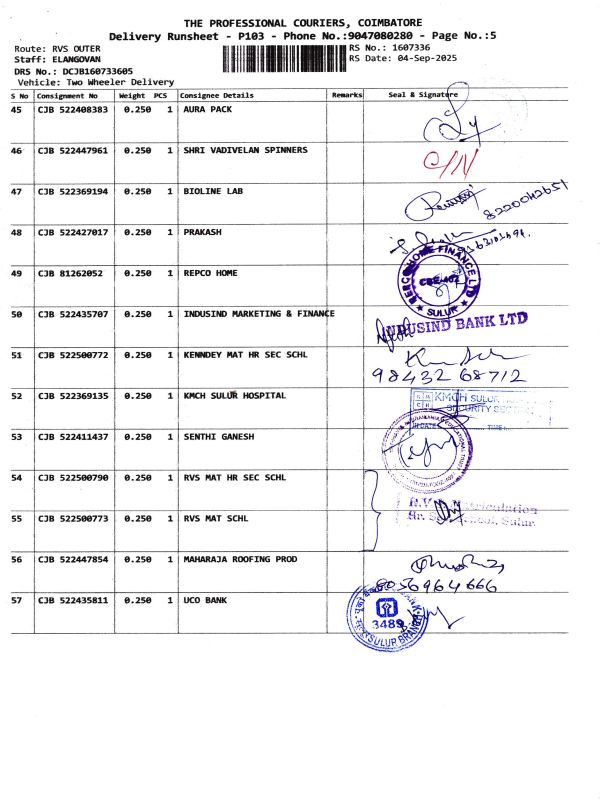 THE PROFESSIONAL COURIERS, COIMBATORE
Delivery Runsheet - P103 - Phone No.:9047080280 - Page No.:5
Route: RVS OUTER
RS No.: 1607336
Staff: ELANGOVAN
RS Date: 04-Sep-2025
DRS No.: DCJB160733605
Vehicle: Two Wheeler Delivery
S No Consignment No Weight PCS Consignee Details Remarks Seal & Signature
45 CJB 522408383 0.250 1 AURA PACK
46 CJB 522447961 0.250 1 SHRI VADIVELAN SPINNERS
47 CJB 522369194 0.250 1 BIOLINE LAB
8220042651
48 CJB 522427017 0.250 1 PRAKASH
49 CJB 81262052 0.250 1 REPCO HOME
REPCO HOME FINANCE LTD
CBE-402
SULUR
50 CJB 522435707 0.250 1 INDUSIND MARKETING & FINANCE
INDUSIND BANK LTD
51 CJB 522500772 0.250 1 KENNDEY MAT HR SEC SCHL
98432 68712
52 CJB 522369135 0.250 1 KMCH SULUR HOSPITAL
KMCH SULUR
SECURITY
53 CJB 522411437 0.250 1 SENTHI GANESH
54 CJB 522500790 0.250 1 RVS MAT HR SEC SCHL
R.V Matriculation
Hr. School, Sulur.
55 CJB 522500773 0.250 1 RVS MAT SCHL
56 CJB 522447854 0.250 1 MAHARAJA ROOFING PROD
8056964666
57 CJB 522435811 0.250 1 UCO BANK
3489
SULUR BRANCH